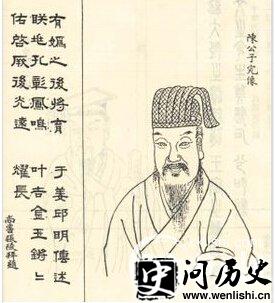 陳公子完像
有媯之後將育于姜邱明傳述
孔彰鳳鳴叶吉金玉鏘々
佑啓厥後光遠耀長
尚書張浚拜題
问历史
www.wenlishi.cn